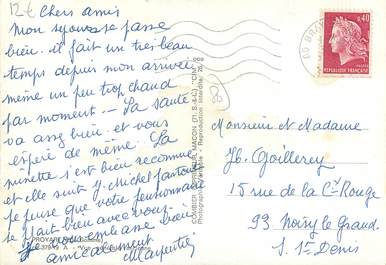 12 €
Chers amis
Mon sejour se passe
bien. il fait un tres beau
temps depuis mon arrivée
même un peu trop chaud
par moment — La santé
va assez bien et vous
espère de même. La
minette s'est bien
et elle suit Michel partout
Je pense que votre pensionnaire
se fait bien avec vous.
Je vous embrasse bien
amicalement
Charpentier
PROYART
COMBIER IMPRIMEUR MACON (71, S.-&-L.) "CIM"
Reproduction interdite
0,40
REPUBLIQUE FRANÇAISE
80 BRAY
Monsieur et Madame
15 rue de la Cx Rouge
93 Noisy le Grand
S. St Denis